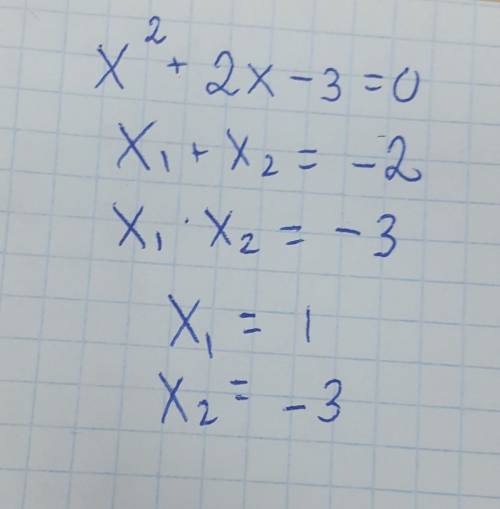 x² + 2x - 3 = 0
x₁ + x₂ = -2
x₁ · x₂ = -3
x₁ = 1
x₂ = -3